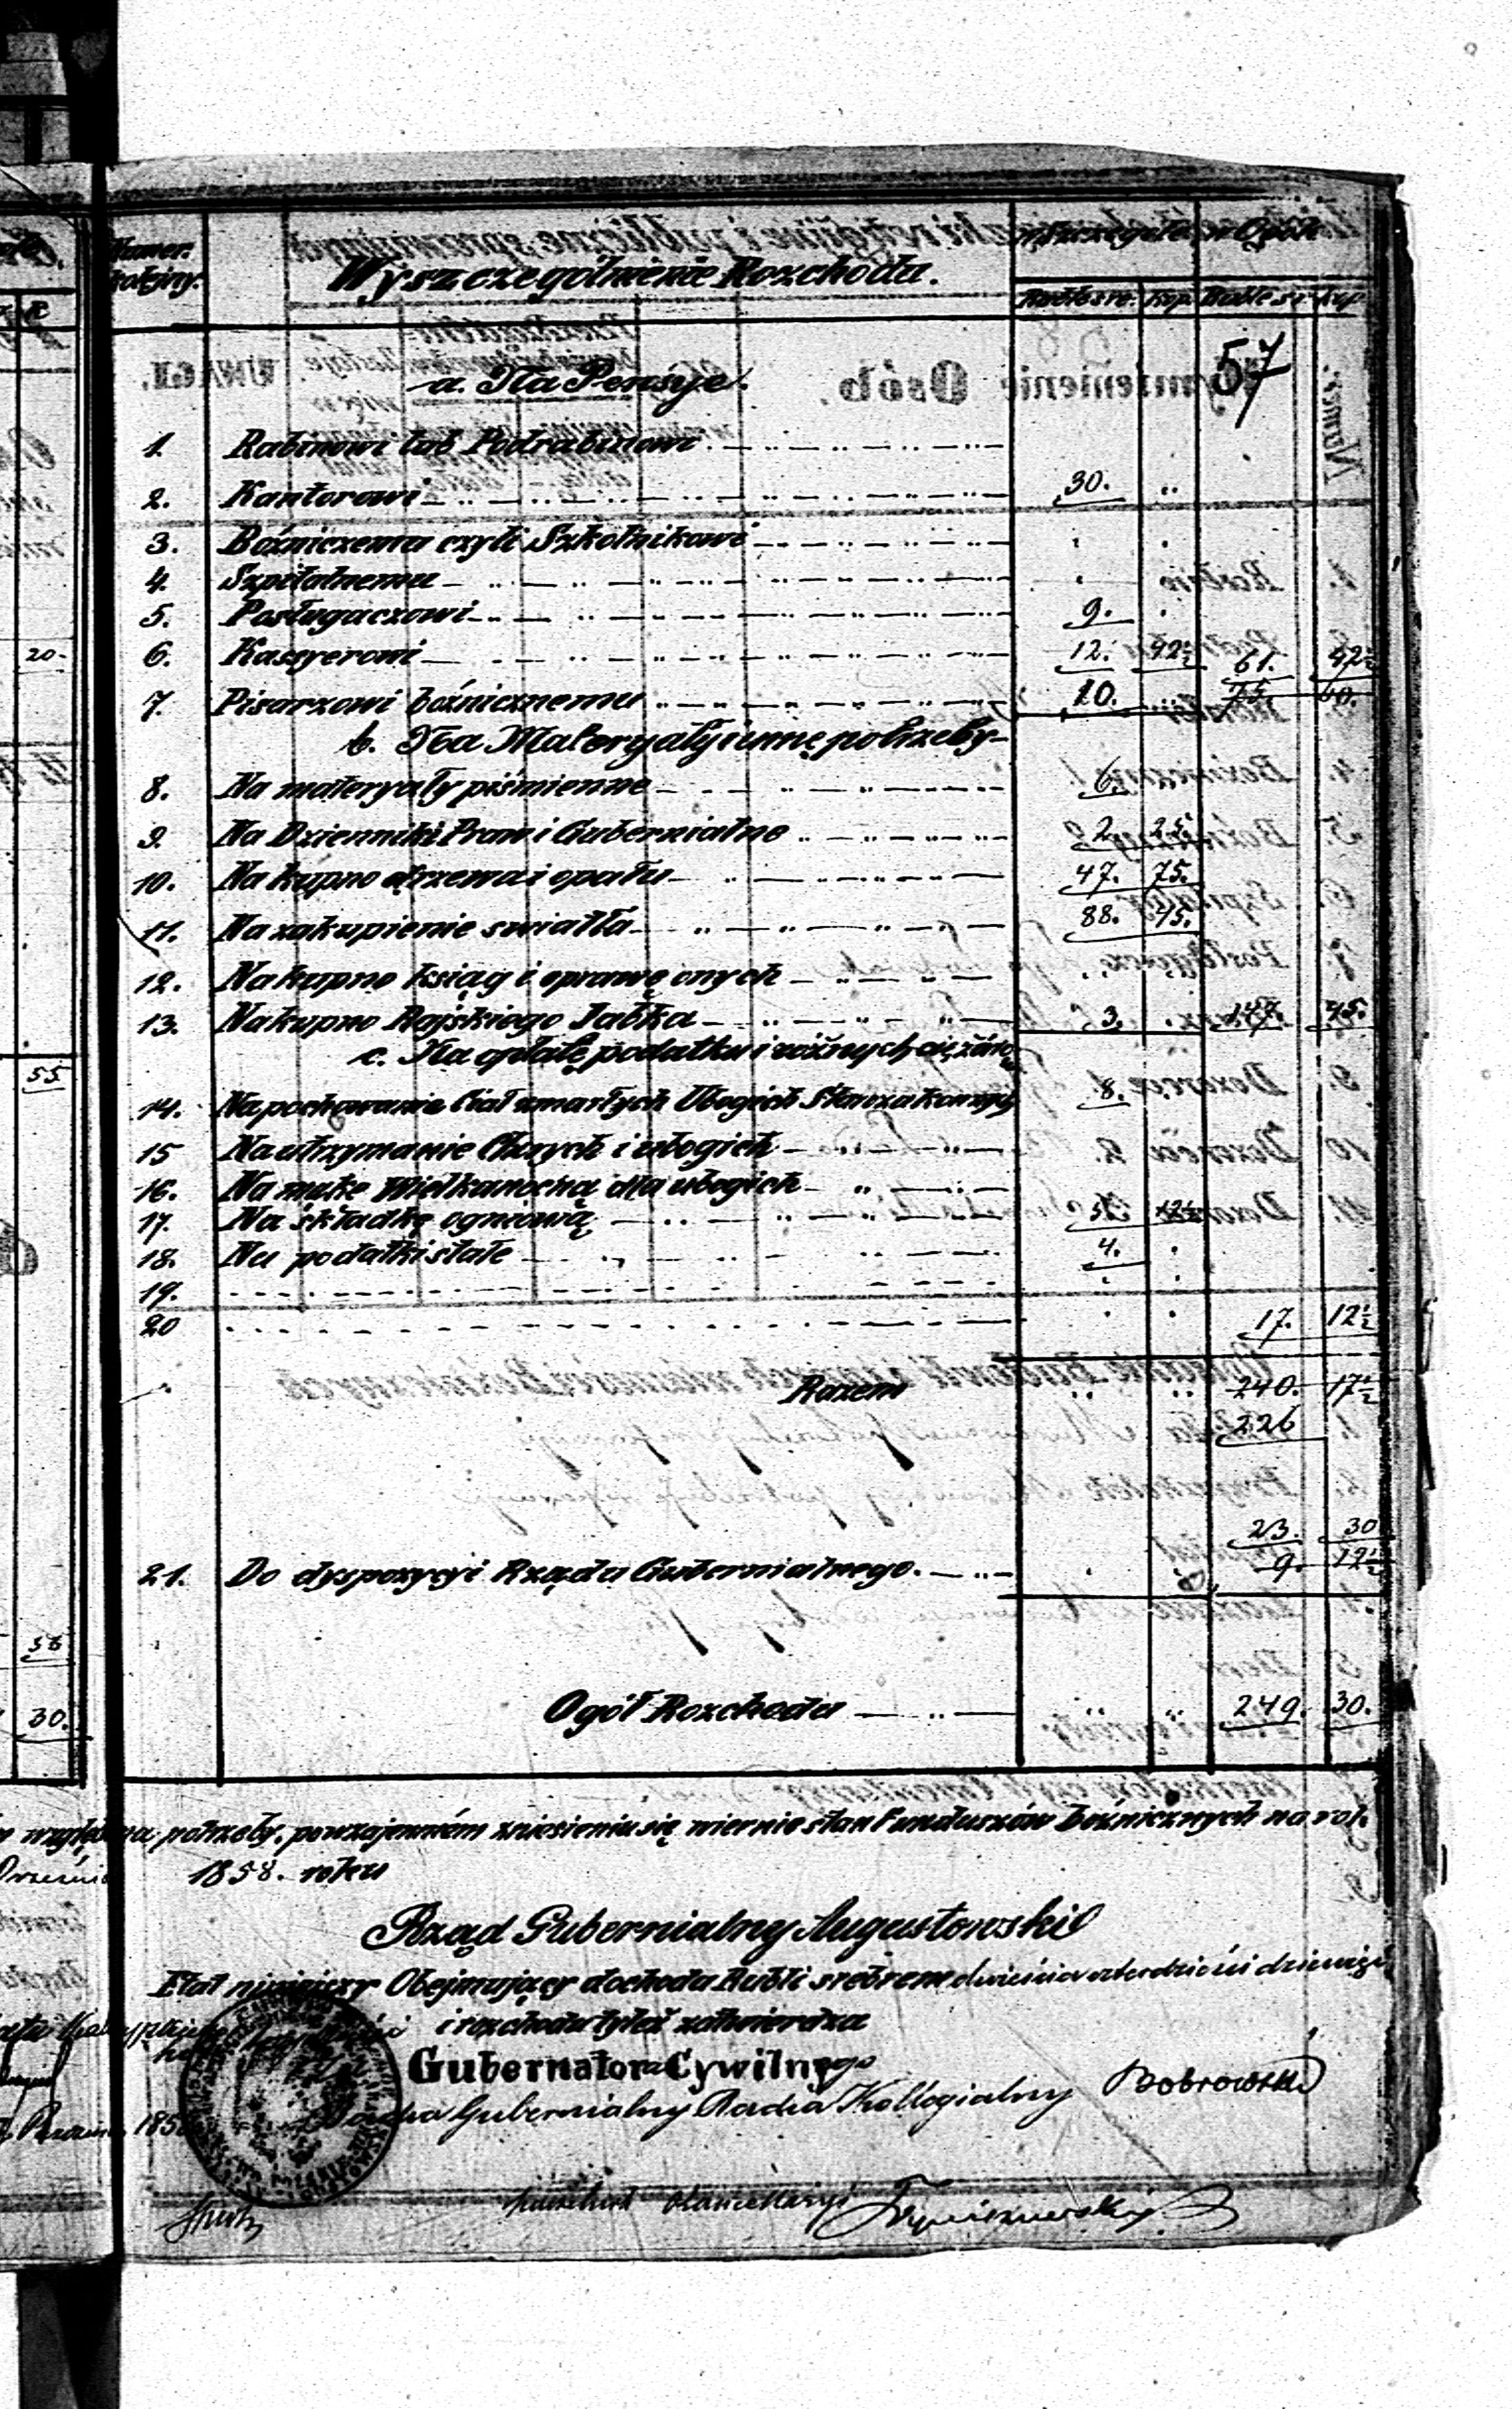 Numer kolejny. Wyszczególnienie Rozchodu. w Szczególe w Ogóle
Ruble sr. Kop. Ruble sr. kop
a. Na Pensye. 57
1. Rabinowi lub Podrabinowi
2. Kantorowi 30. ..
3. Bożniczemu czyli Szkolnikowi
4. Szpitalnemu
5. Posługaczowi 9.
6. Kassyerowi 12. 92½ 61. 92½
7. Pisarzowi bożnicznemu 10. .. 75. 60.
b. Na Materyały i inne potrzeby
8. Na materyały piśmienne 6.
9. Na Dzienniki Praw i Gubernialne 2. 25
10. Na kupno drzewa i opału 47. 75.
11. Na zakupienie swiatła 88. 45.
12. Na kupno ksiąg i oprawę onych
13. Na kupno Rajskiego Jabłka 3. 147. 45.
c. Na opłatę podatku i różnych ciężarów
14. Na pochowanie Ciał zmarłych Ubogich Starozakonnych 8.
15 Na utrzymanie Chorych i ubogich
16. Na mąkę Wielkanocną dla ubogich
17. Na składkę ogniową 5. 12½
18. Na podatki stałe 4.
19.
20 17. 12½
Razem 240. 17½
226
23. 30
21. Do dyspozycyi Rządu Gubernialnego. 9. 12½
Ogół Rozchodu 249. 30.
potrzeby, po wzajemném zniesieniu się wiernie stan Funduszów bóżnicznych na rok
1858. roku
Rząd Gubernialny Augustowski
Etat niniejszy Obejmujący dochodu Rubli srebrem dwieście czterdzieści dziewięć
i rozchodu tyleż zatwierdza
Gubernatora Cywilnego
Radca Gubernialny Radca Kollegialny Dobrowolski
Naczelnik Kancellaryi